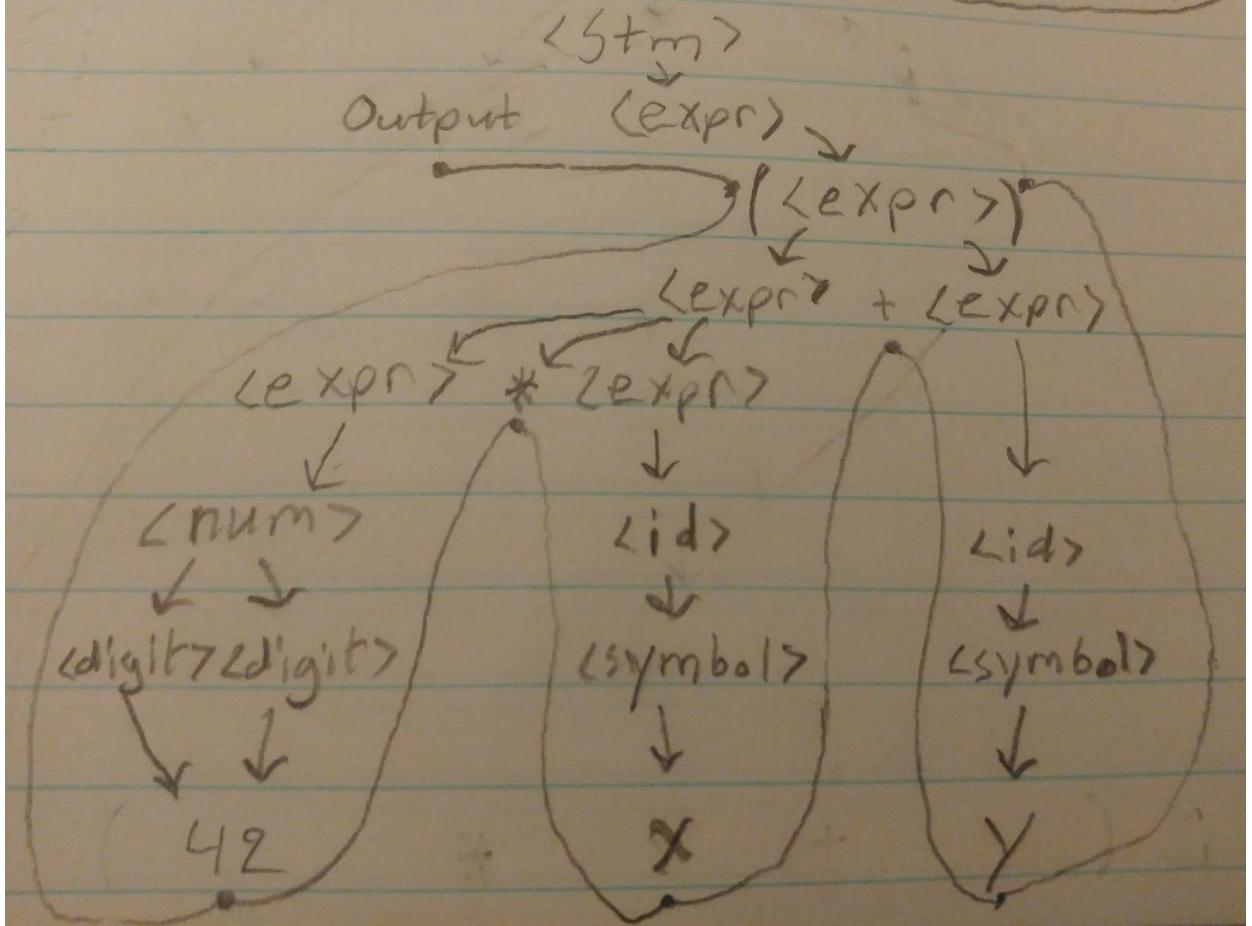 <Stm>
Output <expr>
(<expr>)
<expr> + <expr>
<expr> * <expr>
<num> <id> <id>
<digit><digit> <symbol> <symbol>
42 X Y